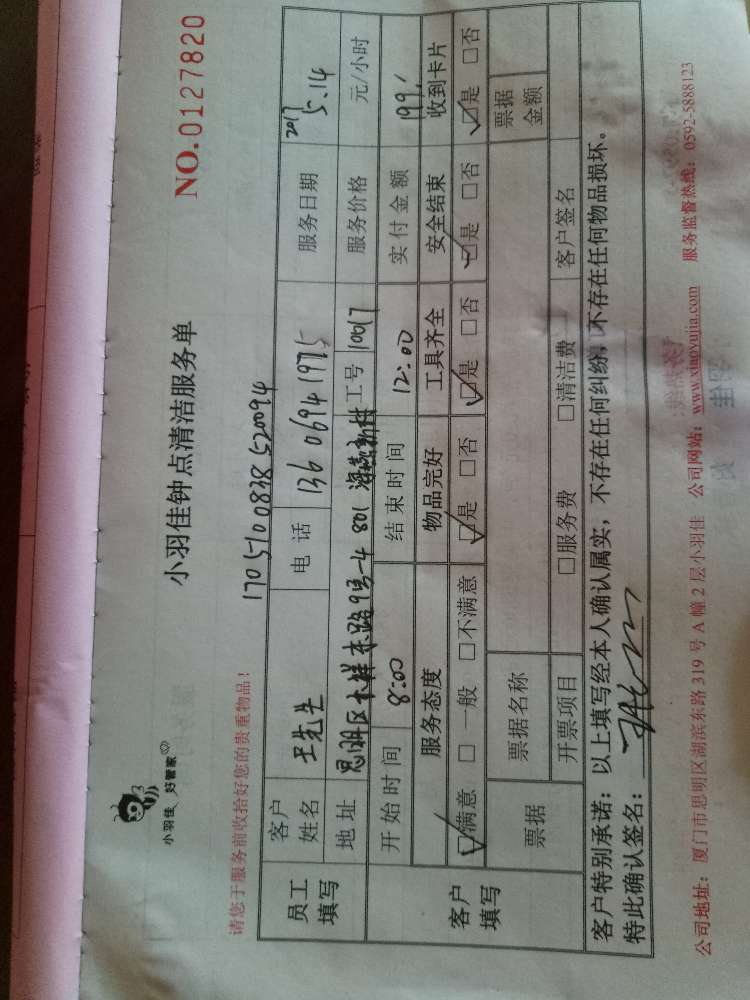 小羽佳 好管家
小羽佳钟点清洁服务单
NO.0127820
请您于服务前收拾好您的贵重物品！
1705100838520094
员工填写 客户姓名 王先生 电话 13606941975 服务日期 2017 5.14
地址 思明区木样东路9号-4 801 海燕新村 工号 10017 服务价格 元/小时
客户填写 开始时间 8:00 结束时间 12:00 实付金额 199/
服务态度 物品完好 工具齐全 安全结束 收到卡片
☑满意 □一般 □不满意 ☑是 □否 ☑是 □否 ☑是 □否 ☑是 □否
票据 票据名称 票据金额
开票项目 □服务费 □清洁费 客户签名
客户特别承诺：以上填写经本人确认属实，不存在任何纠纷，不存在任何物品损坏。
特此确认签名：
公司地址：厦门市思明区湖滨东路319号A幢2层小羽佳 公司网站：www.xiaoyujia.com 服务监督热线：0592-5888123